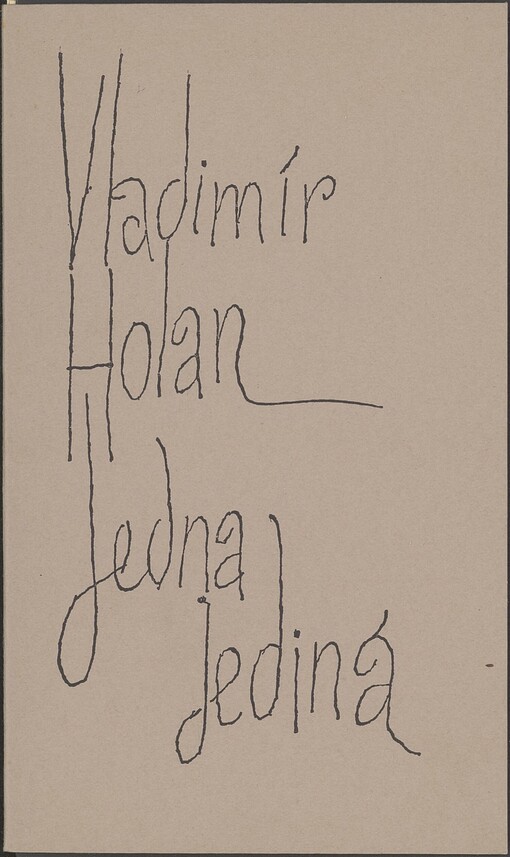 Vladimír
Holan
Jedna
jediná